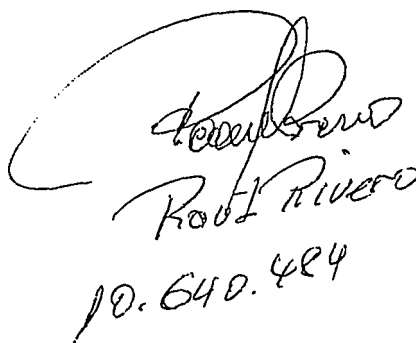 Raul Rivero
10.640.484